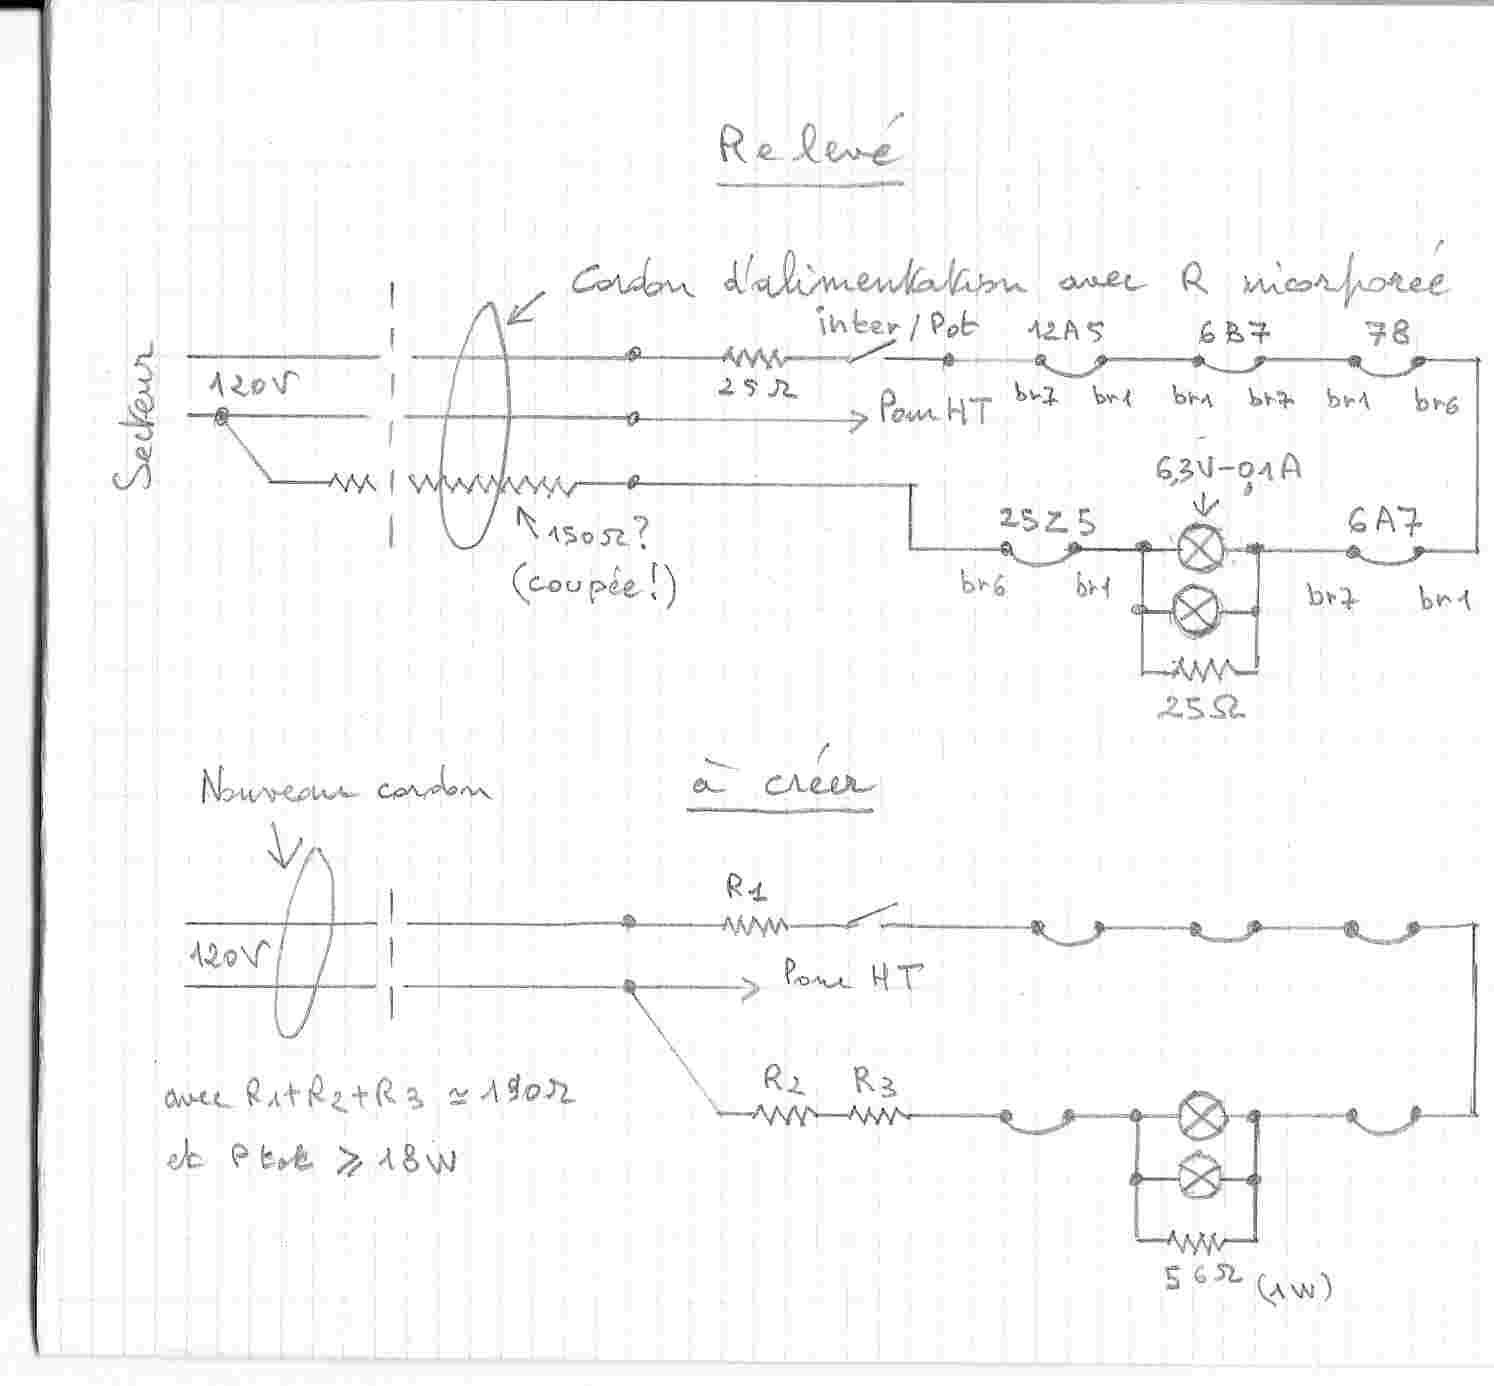 Relevé
Cordon d'alimentation avec R incorporée
inter/Pot
12A5
6B7
78
Secteur
120V
25Ω
br7
br1
br1
br7
br1
br6
Pour HT
6,3V-0,1A
150Ω?
(coupée!)
25Z5
6A7
br6
br1
br7
br1
25Ω
Nouveau cordon
à créer
R1
120V
Pour HT
R2
R3
avec R1+R2+R3 ≃ 190Ω
et Ptot ⩾ 18W
56Ω (1W)